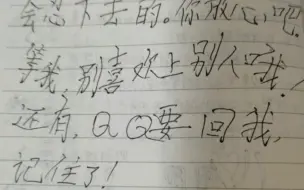 会忍下去的。你放心吧。
等我，别喜欢上别人哦！
还有，QQ要回我，
记住了！